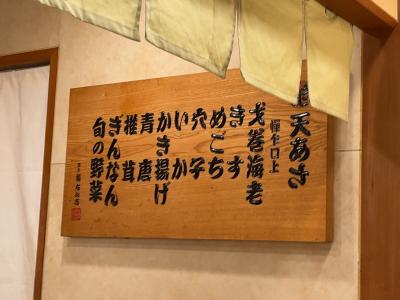 天あさ
憚乍口上
戈巻海老
きす
めごち
穴子
いか
かき揚げ
青唐
椎茸
ぎんなん
旬の野菜